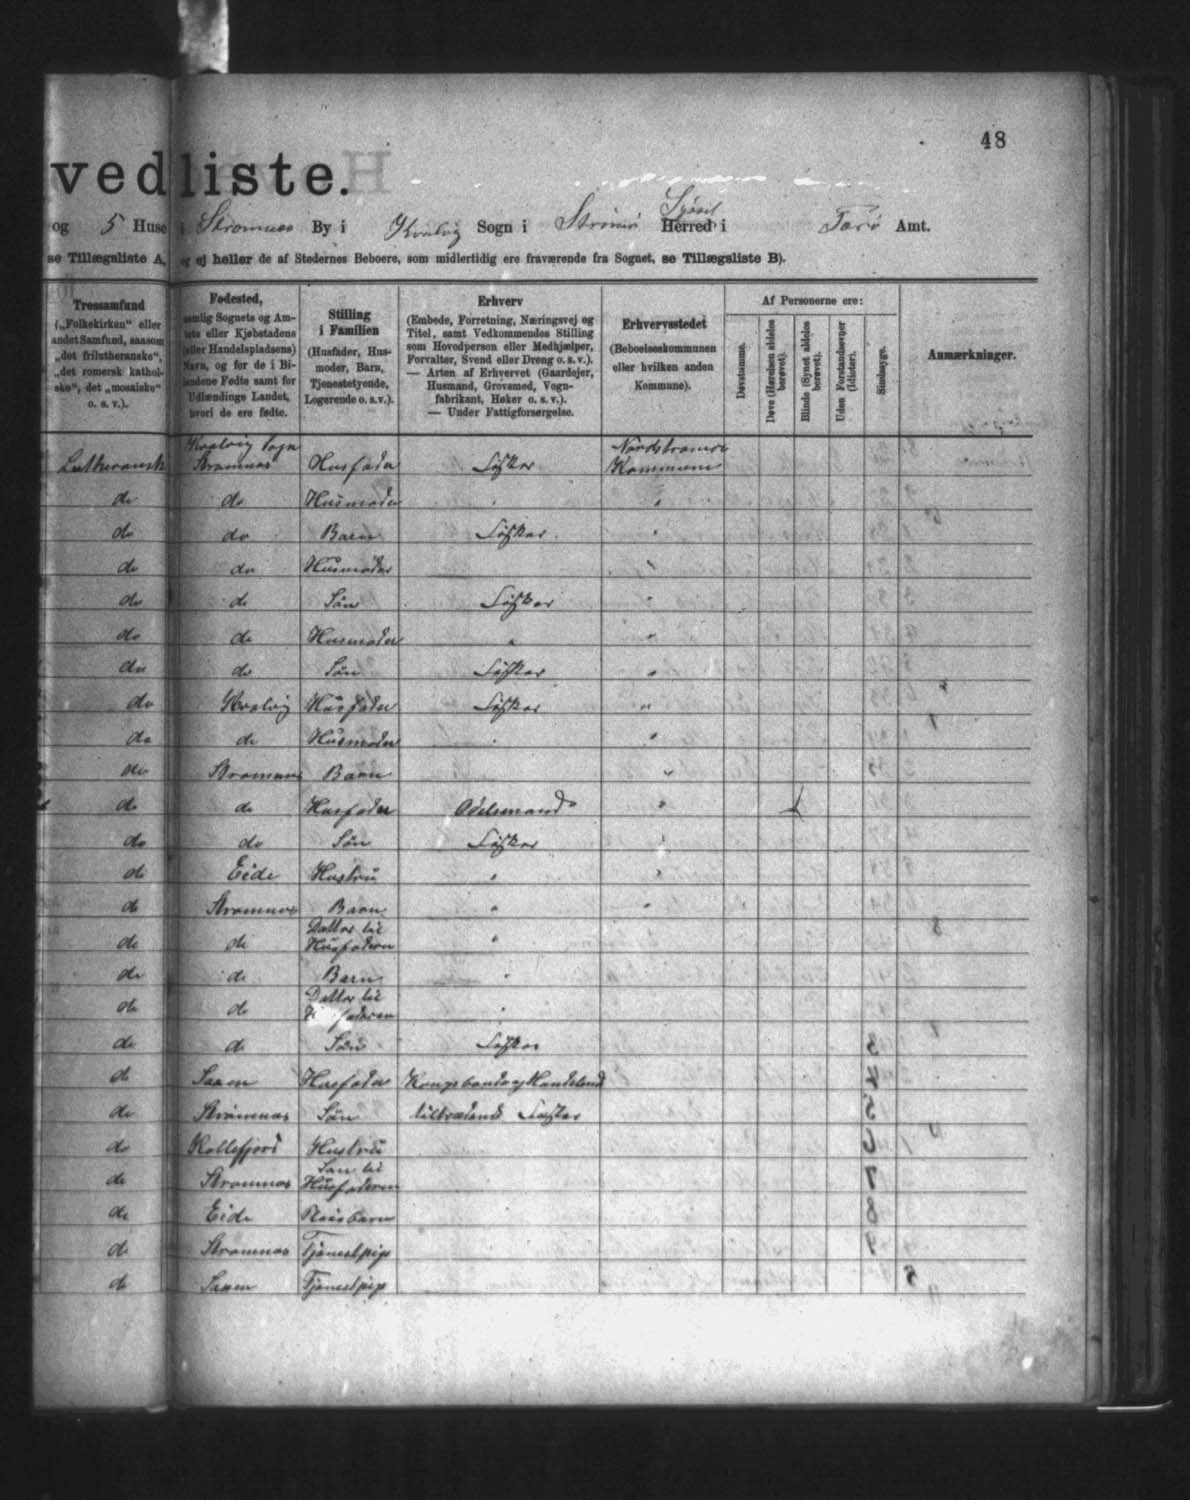 48
vedliste.
og 5 Huse i Strømnæs By i Kvalvig Sogn i Strømø Syssel Herred i Færø Amt.
se Tillægsliste A, og ej heller de af Stedernes Beboere, som midlertidig ere fraværende fra Sognet, se Tillægsliste B).
Trossamfund („Folkekirken“ eller andet Samfund, saasom „det frilutheranske“, „det romersk katholske“, det „mosaiske“ o. s. v.).
Fødested, nemlig Sognets og Amtets eller Kjøbstadens (eller Handelspladsens) Navn, og for de i Bilandene Fødte samt for Udlændinge Landet, hvori de ere fødte.
Stilling i Familien (Husfader, Husmoder, Barn, Tjenestetyende, Logerende o. s. v.).
Erhverv (Embede, Forretning, Næringsvej og Titel, samt Vedkommendes Stilling som Hovedperson eller Medhjælper, Forvalter, Svend eller Dreng o. s. v.). — Arten af Erhvervet (Gaardejer, Husmand, Grovsmed, Vognfabrikant, Høker o. s. v.). — Under Fattigforsørgelse.
Erhvervsstedet (Beboelseskommunen eller hvilken anden Kommune).
Af Personerne ere:
Døvstumme.
Døve (Hørelsen aldeles berøvet).
Blinde (Synet aldeles berøvet).
Uden Forstandsevner (Idioter).
Sindssyge.
Anmærkninger.
Kvalvig Sogn Nordstrømø
Luthersansk Strømnæs Husfader Fisker Kommune
do do Husmoder " "
do do Barn Fisker "
do do Husmoder "
do do Søn Fisker "
do do Husmoder " "
do do Søn Fisker "
do Kvalvig Husfader Fisker "
do do Husmoder " "
do Strømnæs Barn "
do do Husfader Odelsmand "
do do Søn Fisker "
do Eide Hustru " "
do Strømnæs Barn " "
do do Datter til Husfaderen "
do do Barn "
do do Datter til Husfaderen "
do do Søn Fisker
do Saxen Husfader Kongsbonde og Handelsmd
do Strømnæs Søn tiltrædende Fæster
do Kollefjord Hustru
do Strømnæs Søn til Husfaderen
do Eide Pleiebarn
do Strømnæs Tjenestpige
do Saxen Tjenestpige